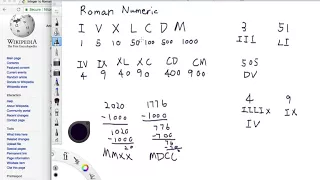 Roman Numeric
I V X L C D M
1 5 10 50 100 500 1000
IV IX XL XC CD CM
4 9 40 90 400 900
2020
-1000
1020
-1000
20
MMXX
1776
-1000
776
-700
76
MDCC
3 51
III LI
505
DV
4 9
IIII x IX
IV
WIKIPEDIA
The Free Encyclopedia
Main page
Contents
Featured content
Current events
Random article
Donate to Wikipedia
Wikipedia store
Interaction
Help
About Wikipedia
Community portal
Recent changes
Contact page
Tools
What links here
Related changes
Upload file
Special pages
Permanent link